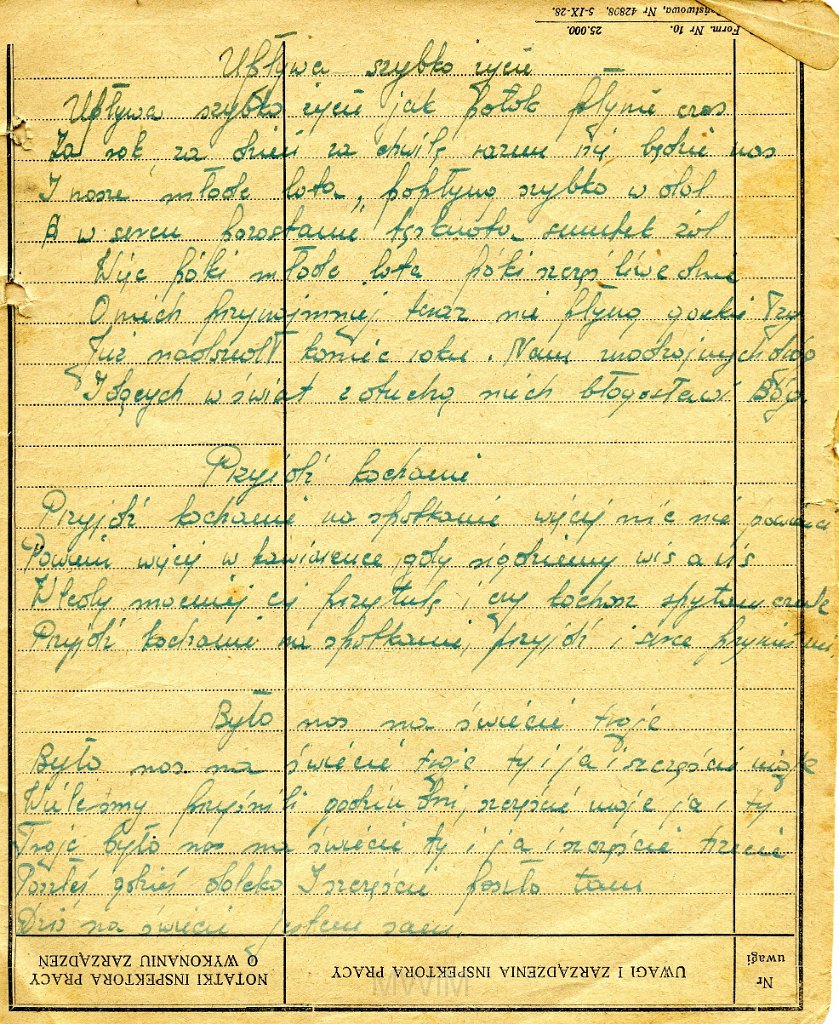 Państwowa, Nr 42808, 5-IX-28.
Form. Nr 10. 25.000.
Upływa szybko życie
Upływa szybko życie jak potok płynie czas
Za rok za dzień za chwilę razem nie będzie nas
I nasze młode lata, popłyną szybko w dal
A w sercu pozostanie tęsknota smutek żal
Więc póki młode lata póki szczęśliwe dni
O niech przynajmniej teraz nie płyną gorzkie łzy
Już nadszedł koniec roku. Nam
Idących w świat z otuchą niech błogosławi Bóg
Przyjdź kochanie
Przyjdź kochanie na spotkanie więcej nic nie powiem
Powiem więcej w kawiarence gdy siądziemy wis a wis
Wtedy mocniej cię przytulę i czy kochasz spytam czule
Przyjdź kochanie na spotkanie, przyjdź i serce przynieś mi.
Było nas na świecie troje
Było nas na świecie troje ty i ja i szczęście moje
Wieleśmy przeżyli godzin dni, szczęście moje ja i ty
Troje było nas na świecie ty i ja i szczęście trzecie
Poszłeś gdzieś daleko I szczęście poszło tam
Dziś na świecie jestem sam.
NOTATKI INSPEKTORA PRACY O WYKONANIU ZARZĄDZEŃ
UWAGI I ZARZĄDZENIA INSPEKTORA PRACY
Nr uwagi
MWIM